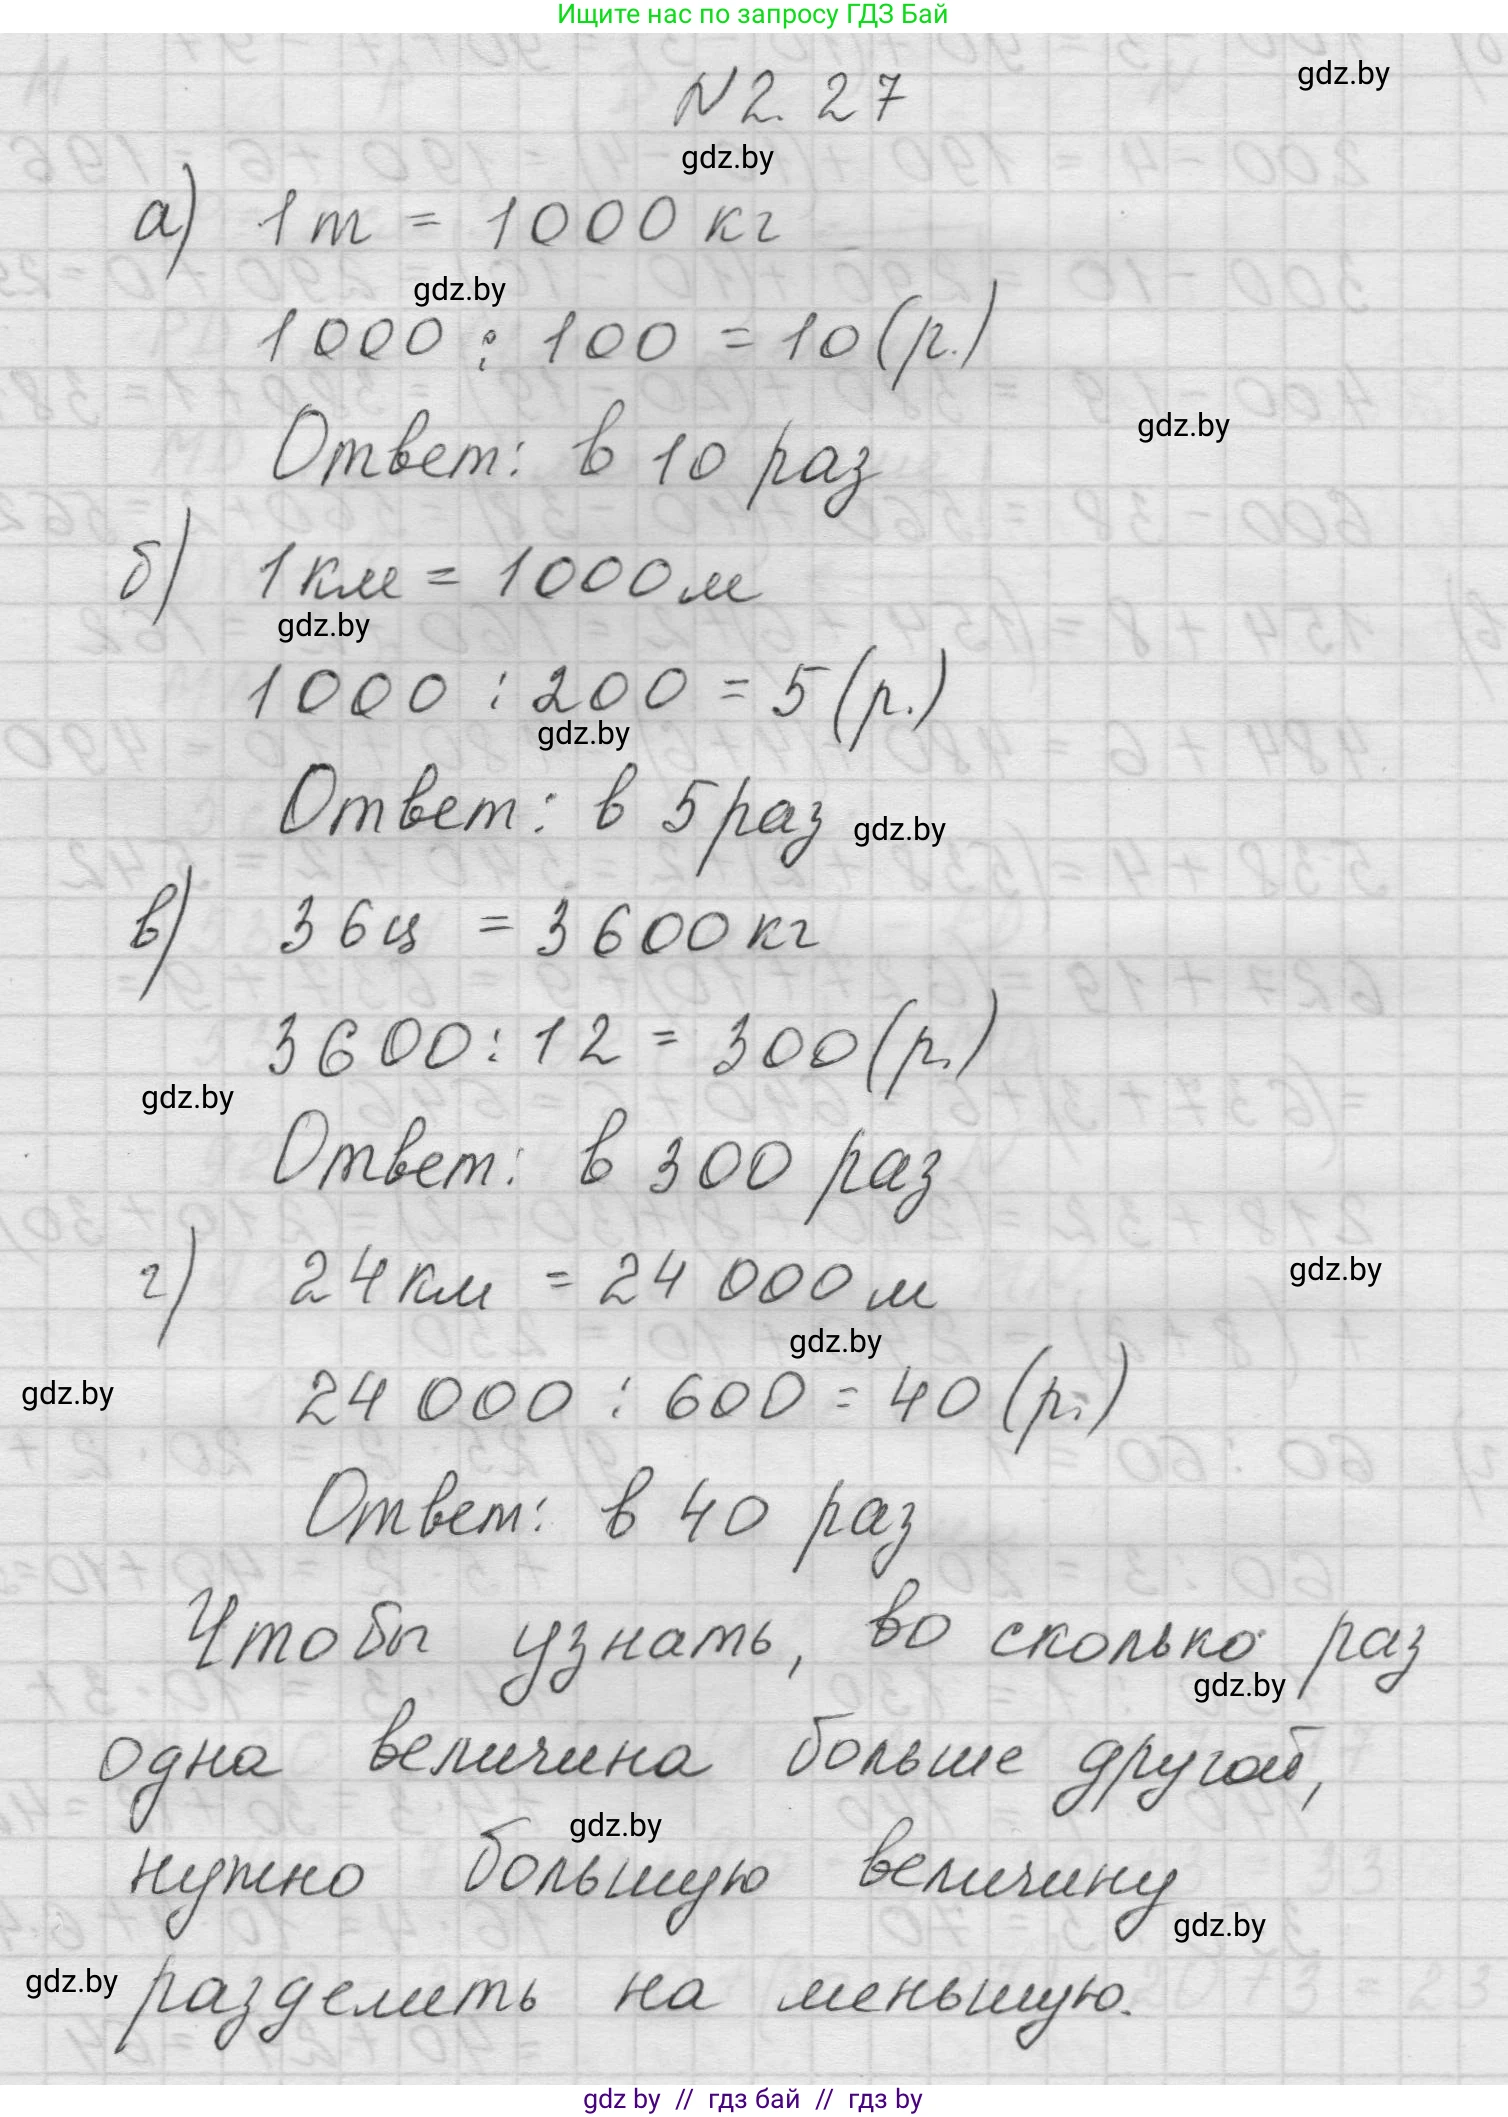 Ищите нас по запросу ГДЗ Бай
gdz.by
N 2. 27
gdz.by
а) 1 т = 1000 кг
gdz.by
1000 : 100 = 10 (р.)
gdz.by
Ответ: в 10 раз
б) 1 км = 1000 м
gdz.by
1000 : 200 = 5 (р.)
gdz.by
Ответ: в 5 раз gdz.by
в) 36 ц = 3600 кг
3600 : 12 = 300 (р.)
gdz.by
Ответ: в 300 раз
г) 24 км = 24 000 м gdz.by
gdz.by
gdz.by 24 000 : 600 = 40 (р.)
Ответ: в 40 раз
Чтобы узнать, во сколько раз
gdz.by
одна величина больше другой,
gdz.by
нужно большую величину
gdz.by
gdz.by разделить на меньшую.
gdz by // гдз бай // гдз by